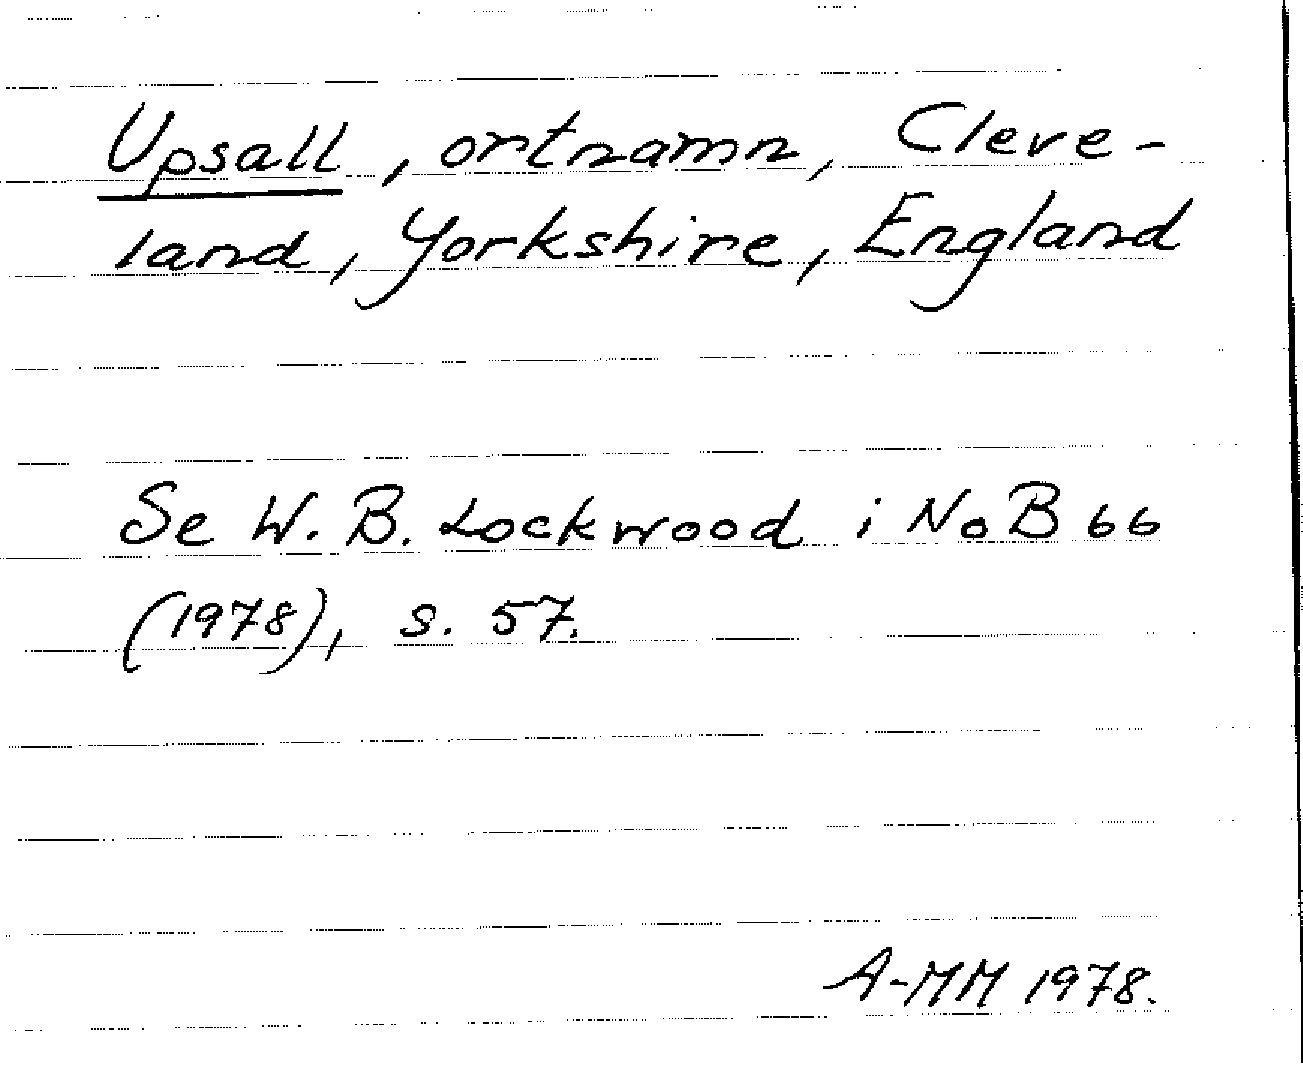 Upsall, ortnamn, Cleve-
land, Yorkshire, England
Se W. B. Lockwood i NoB 66
(1978), s. 57.
A-MM 1978.